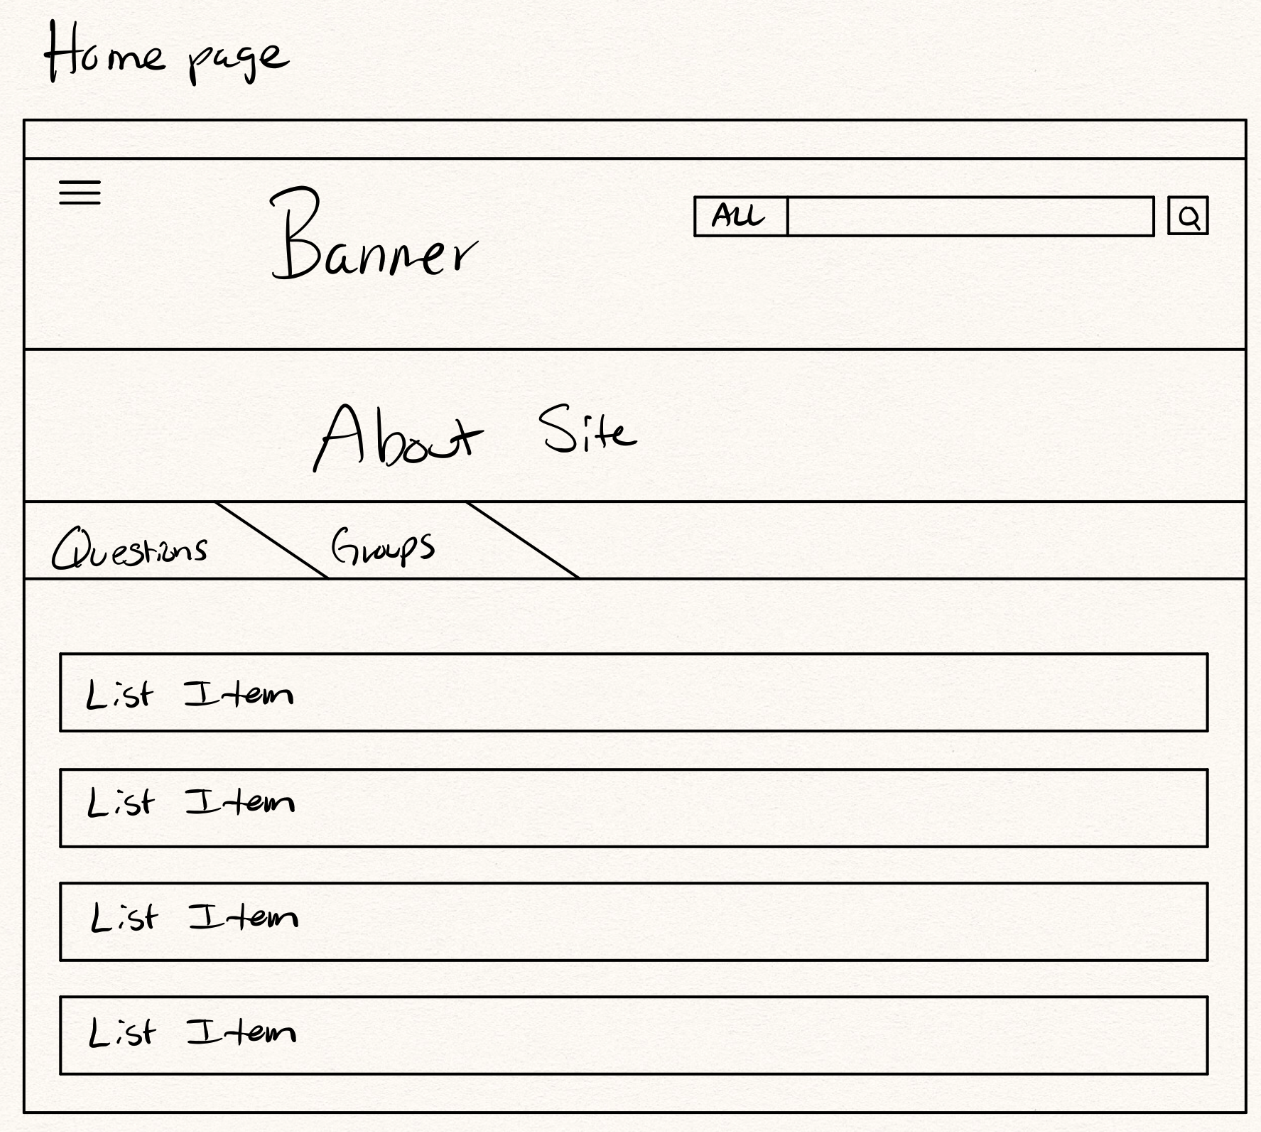 Home page
Banner
ALL
About Site
Questions
Groups
List Item
List Item
List Item
List Item